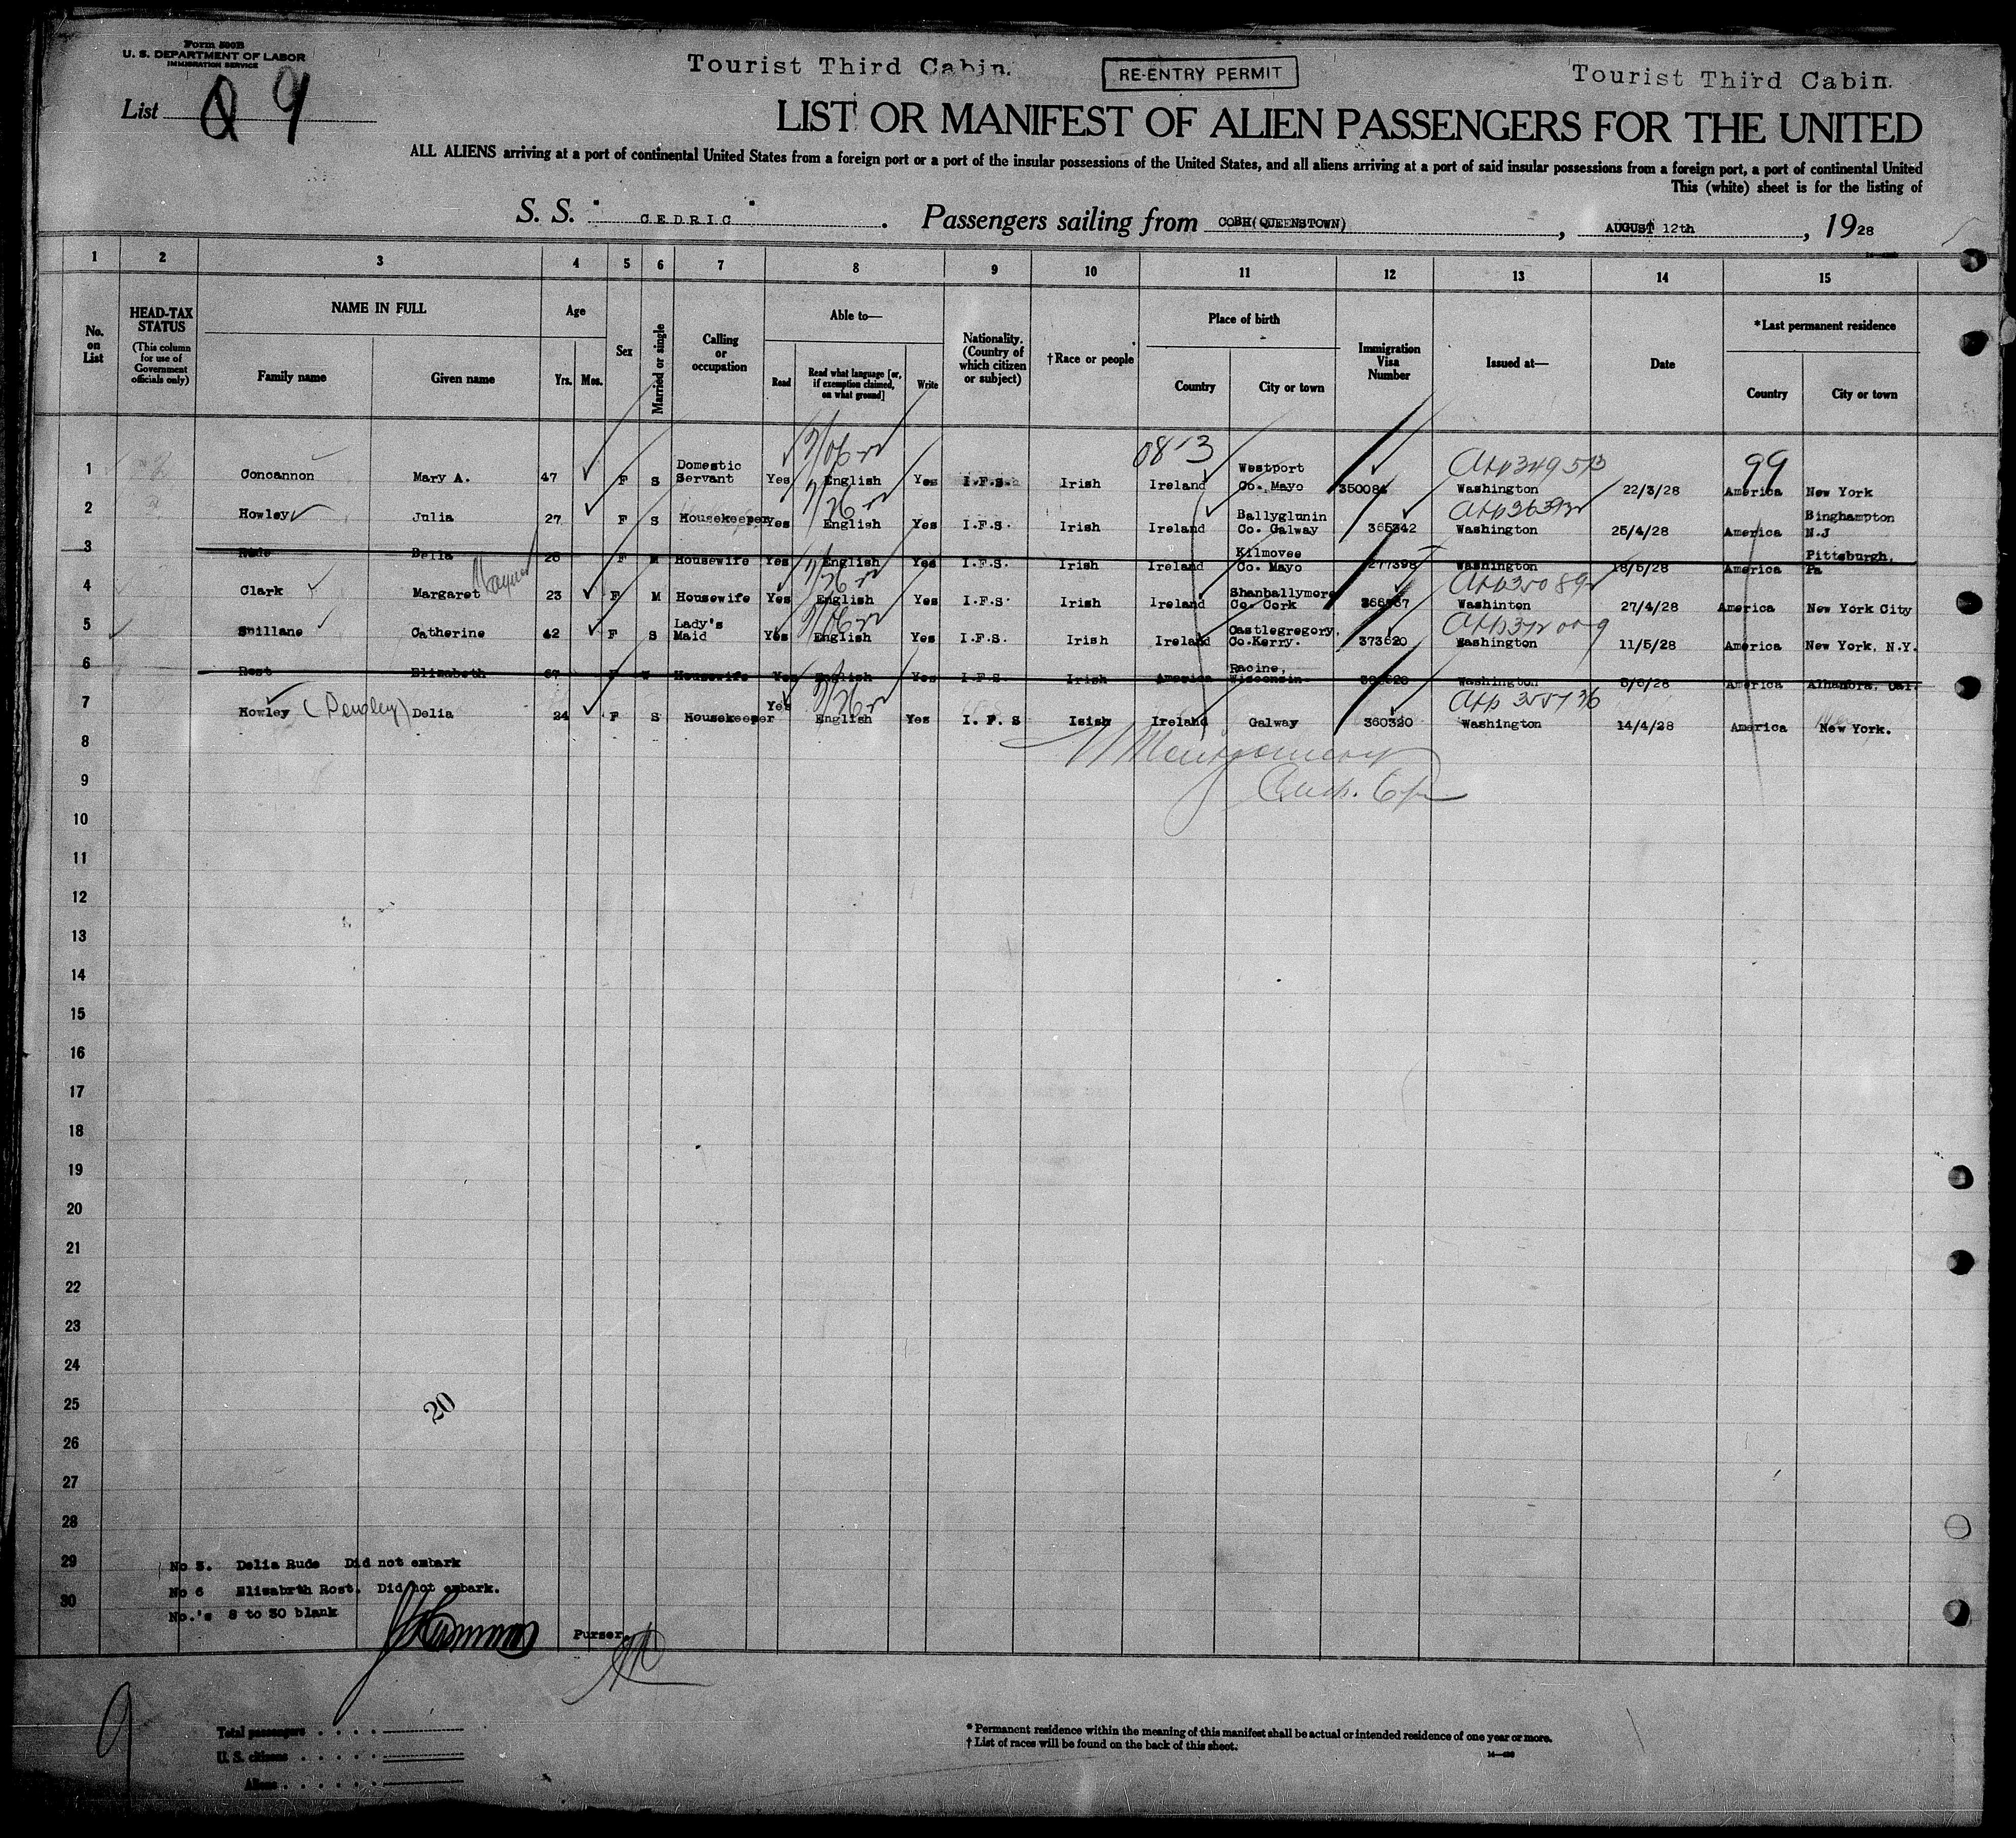 Form 500B
U. S. DEPARTMENT OF LABOR
IMMIGRATION SERVICE
Tourist Third Cabin.
RE-ENTRY PERMIT
Tourist Third Cabin.
List 9
LIST OR MANIFEST OF ALIEN PASSENGERS FOR THE UNITED
ALL ALIENS arriving at a port of continental United States from a foreign port or a port of the insular possessions of the United States, and all aliens arriving at a port of said insular possessions from a foreign port, a port of continental United
This (white) sheet is for the listing of
S. S. " CEDRIC " . Passengers sailing from COBH(QUEENSTOWN) , AUGUST 12th , 1928
1 2 3 4 5 6 7 8 9 10 11 12 13 14 15
No. on List
HEAD-TAX STATUS
(This column for use of Government officials only)
NAME IN FULL
Family name Given name
Age
Yrs. Mos.
Sex
Married or single
Calling or occupation
Able to—
Read
Read what language [or, if exemption claimed, on what ground]
Write
Nationality. (Country of which citizen or subject)
†Race or people
Place of birth
Country City or town
Immigration Visa Number
Issued at—
Date
*Last permanent residence
Country City or town
0813 99
1 Concannon Mary A. 47 F S Domestic Servant Yes English Yes I.F.S. Irish Ireland Westport Co. Mayo 350084 Washington 22/3/28 America New York
2 Howley Julia 27 F S Housekeeper Yes English Yes I.F.S. Irish Ireland Ballyglunin Co. Galway 365342 Washington 25/4/28 America Binghampton N.J
3 Rude Della 28 F M Housewife Yes English Yes I.F.S. Irish Ireland Kilmovee Co. Mayo 277398 Washington 18/5/28 America Pittsburgh, Pa
4 Clark Margaret 23 F M Housewife Yes English Yes I.F.S. Irish Ireland Shanballymore Co. Cork Washinton 27/4/28 America New York City
5 Spillane Catherine 42 F S Lady's Maid Yes English Yes I.F.S. Irish Ireland Castlegregory, Co.Kerry. 373620 Washington 11/5/28 America New York, N.Y.
6 Rost Elizabeth 67 F W Housewife Yes English Yes I.F.S. Irish America Racine, Wisconsin. Washington America Alhambra, Cal.
7 Howley Delia 24 F S Housekeeper Yes English Yes I. F. S Isish Ireland Galway 360320 Washington 14/4/28 America New York.
8
9
10
11
12
13
14
15
16
17
18
19
20
21
22
23
24
25
20
26
27
28
29
30
No 3. Delia Rude Did not embark
No 6 Elisabrth Rost. Did not embark.
No.'s 8 to 30 blank
Purser.
9
Total passengers . . . .
U. S. citizens . . . . .
Aliens . . . . . .
* Permanent residence within the meaning of this manifest shall be actual or intended residence of one year or more.
† List of races will be found on the back of this sheet.